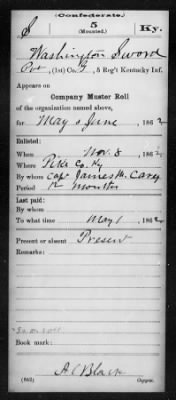 (Confederate.)
S 5 Ky.
(Mounted.)
Washington Sword
Pvt., (1st) Co. G, 5 Reg't Kentucky Inf.
Appears on
Company Muster Roll
of the organization named above,
for May & June, 1862
Enlisted:
When Nov. 8, 186
Where Pike Co. Ky
By whom Capt James M. Carey
Period 12 months
Last paid:
By whom
To what time May 1, 1862
Present or absent Present
Remarks:
So on roll
Book mark:
A C Black
(642) Copyist.